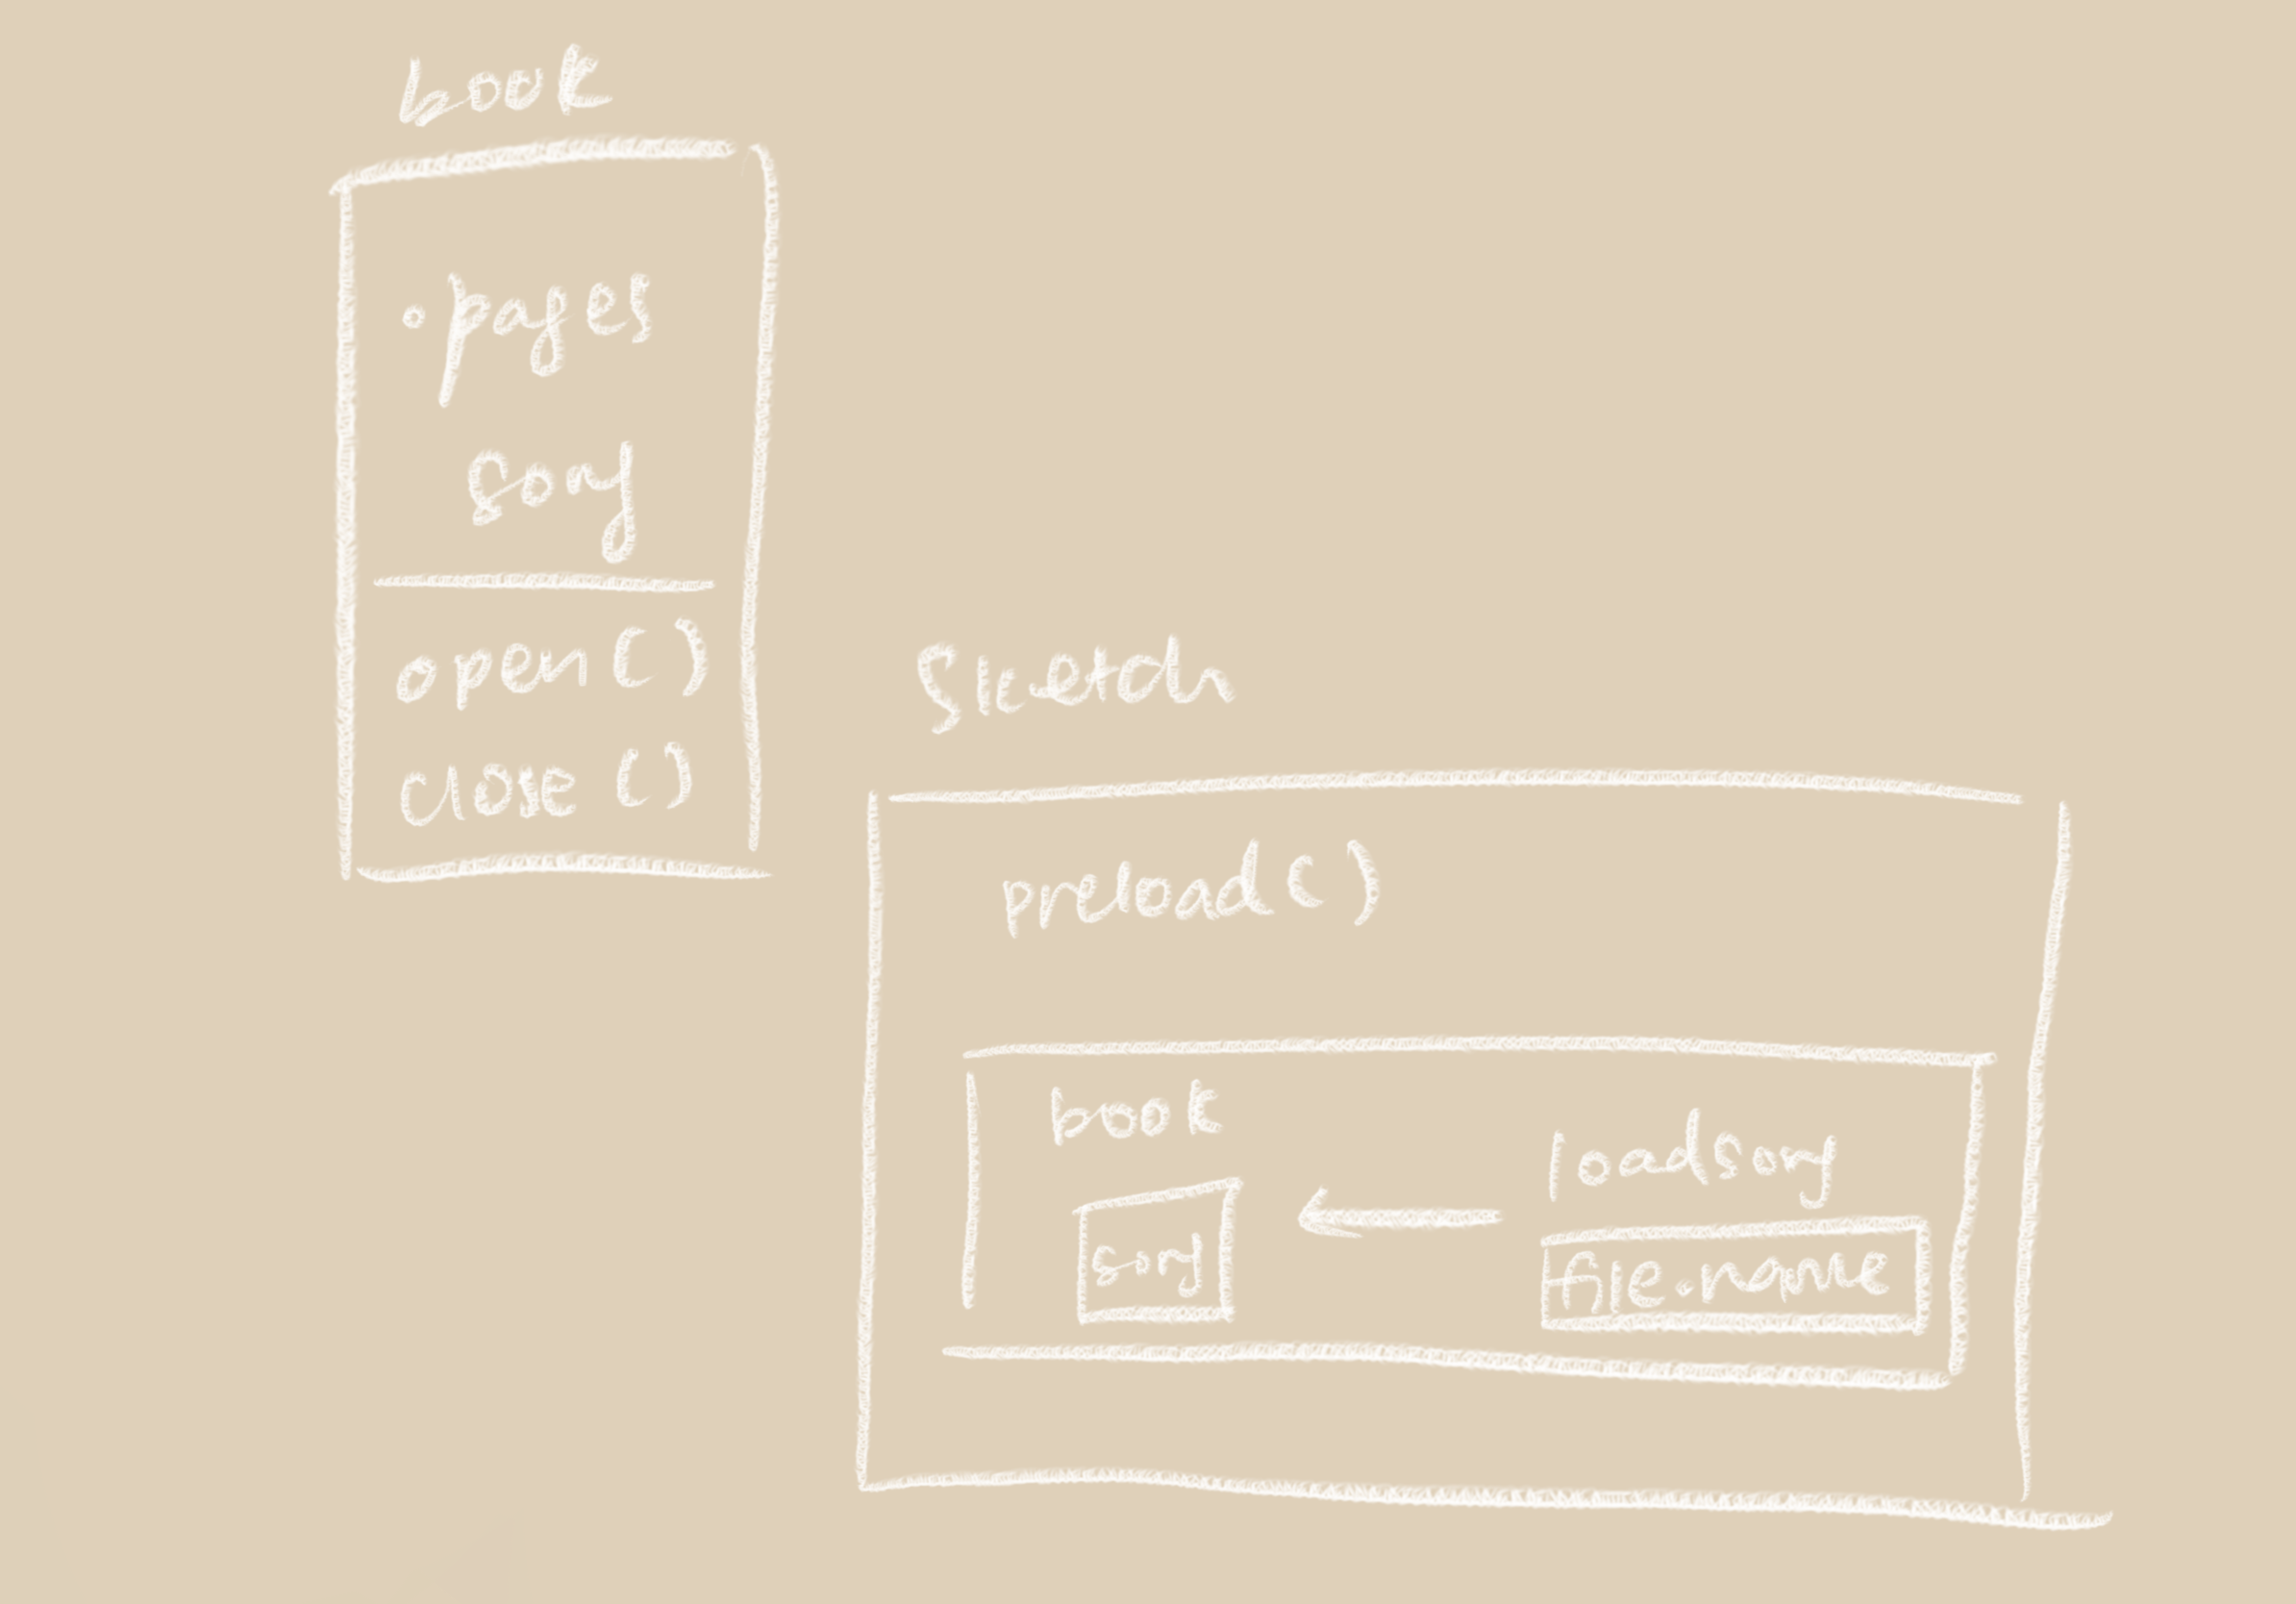 book
• pages
song
open()
close()
Sketch
preload()
book
loadsong
song
file.name